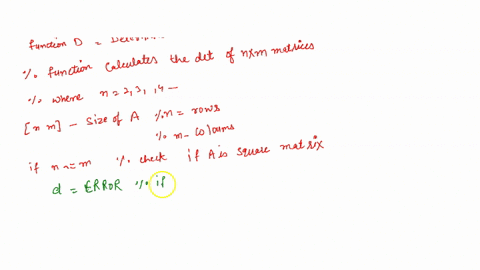 function D =
% function calculates the det of nxm metrices
% where n=2,3, ,4 —
[n m] - size of A %n = rows
% m- coloums
if n ~= m % check if A is square matrix
d = ERROR % if